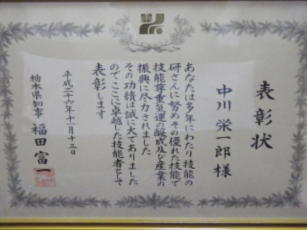 表彰状
中川栄一郎様
あなたは多年にわたり技能の
研さんに努めその優れた技能で
技能尊重気運の醸成及び産業の
振興に尽力されました
その功績は誠に大でありました
のでここに卓越した技能者として
表彰します
平成二十六年十一月十二日
栃木県知事 福田富一